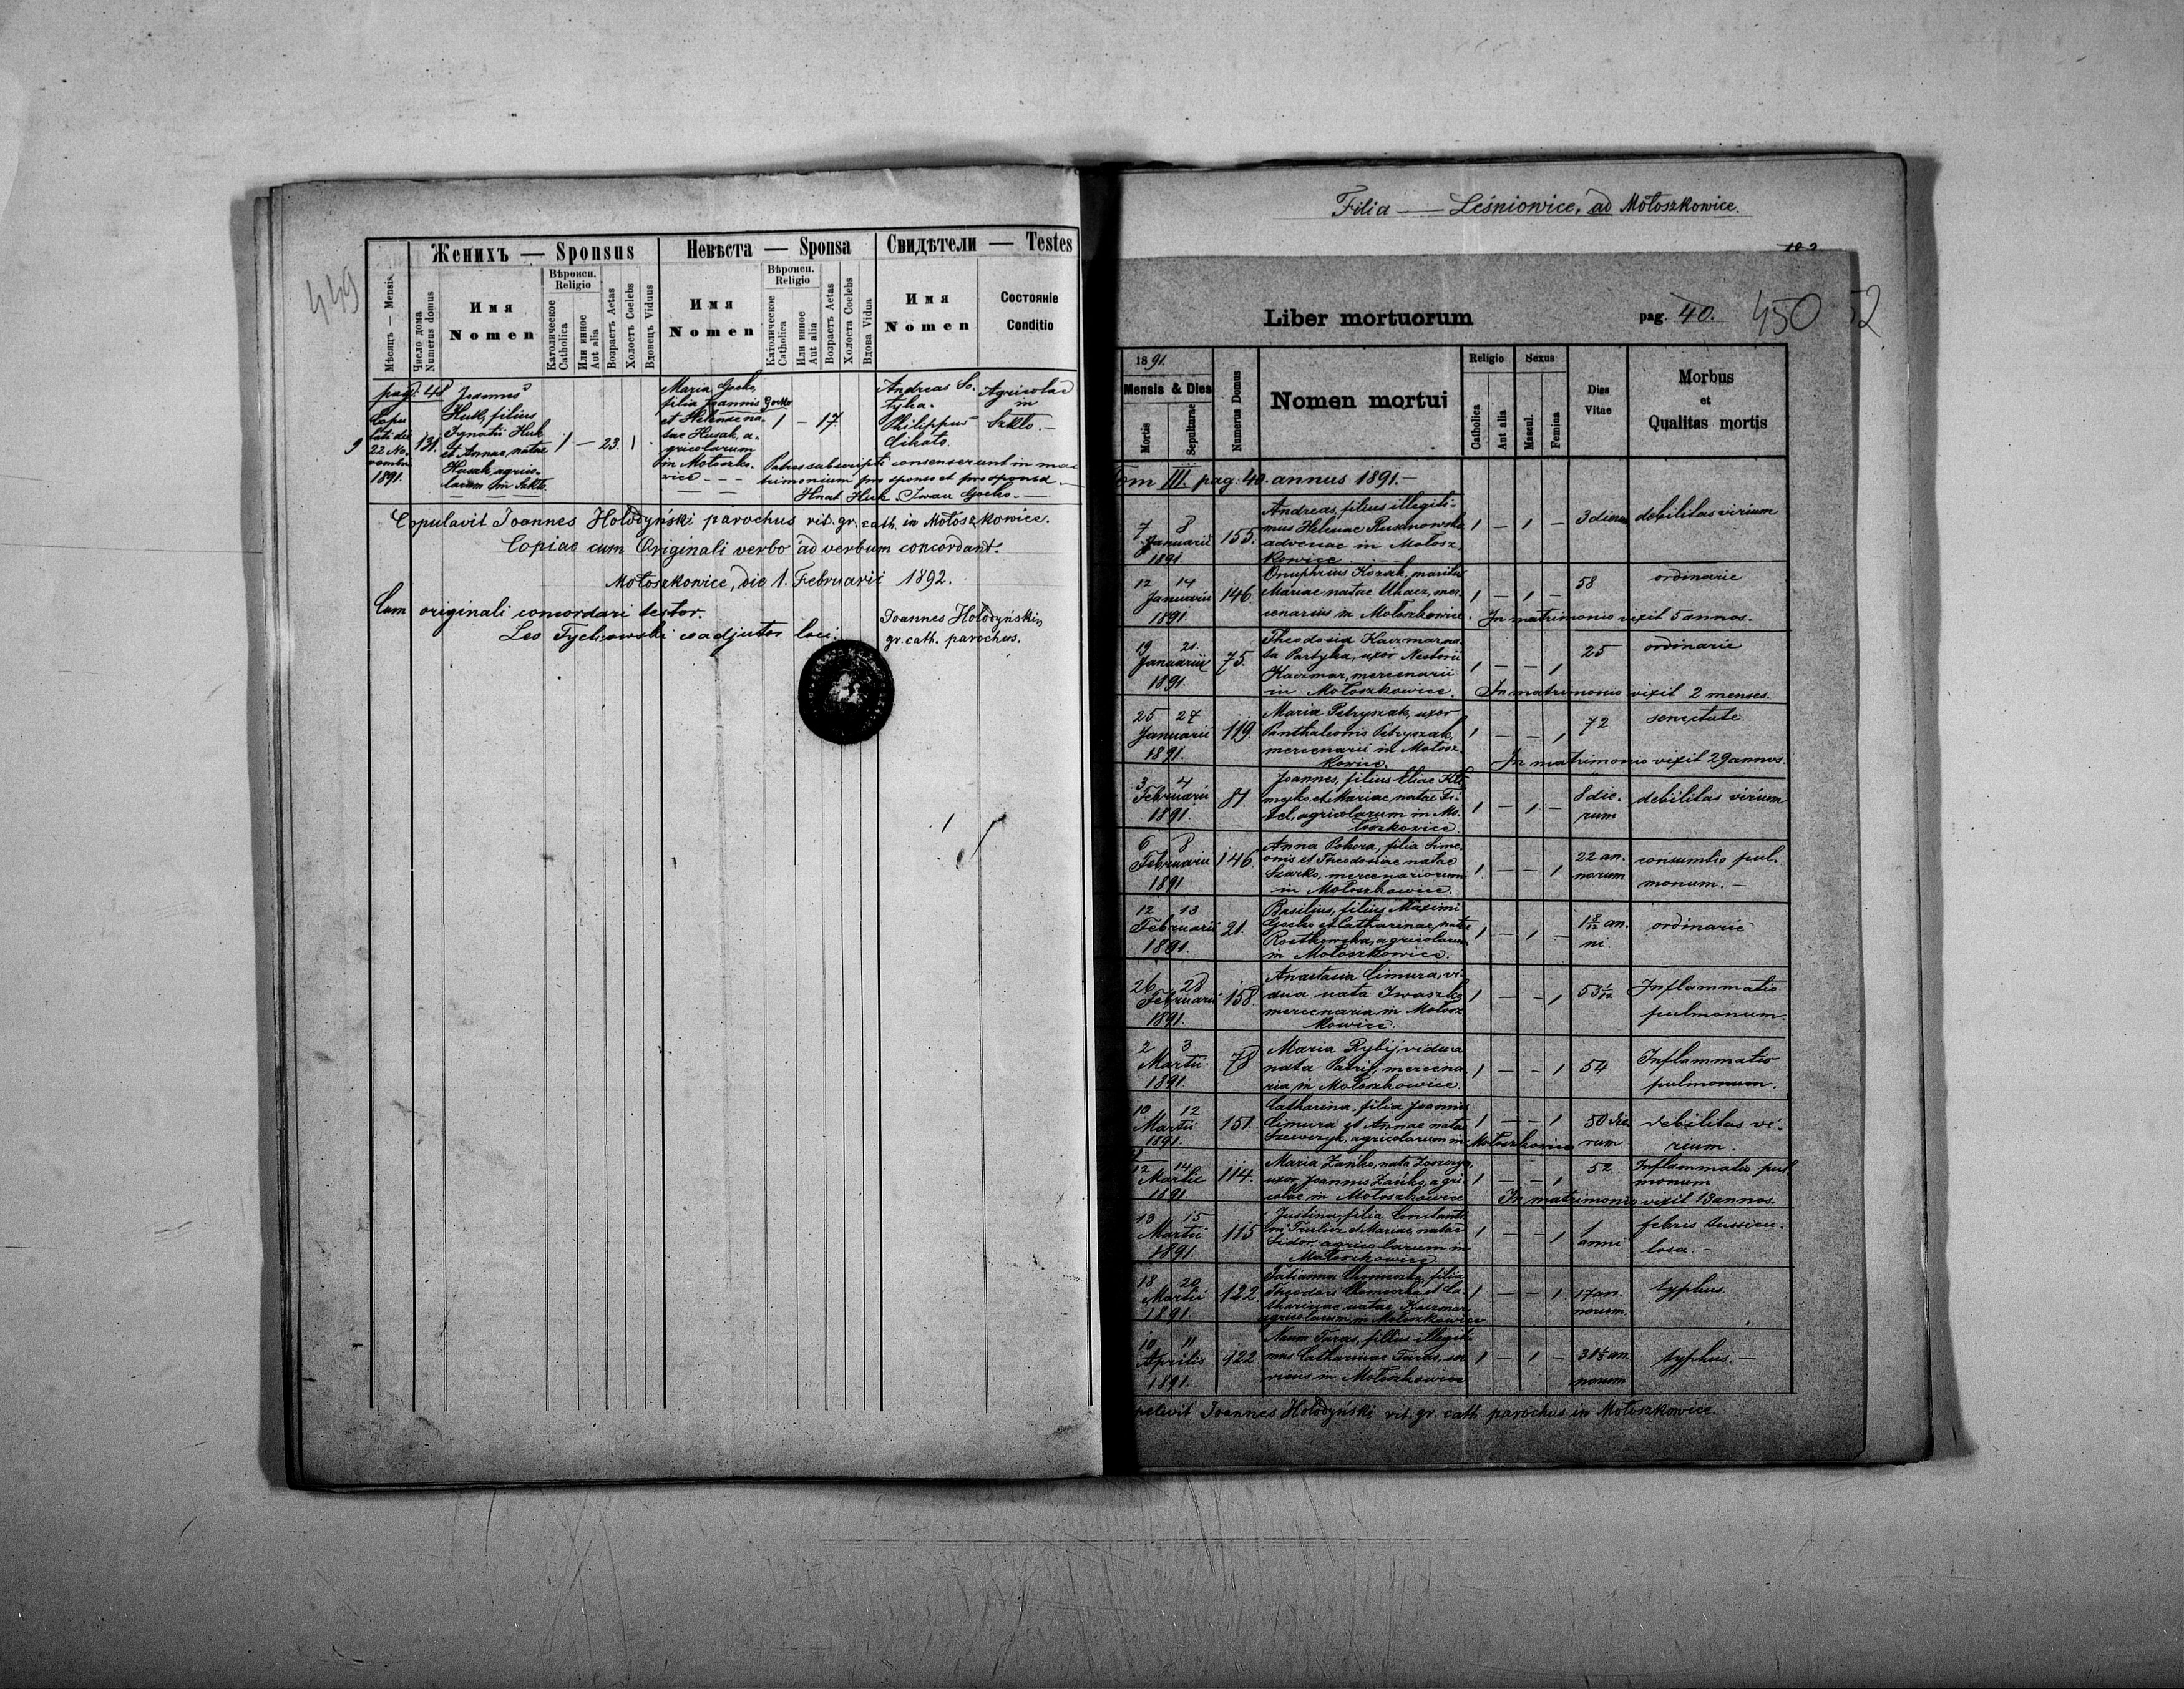 449
Женихъ — Sponsus
Невѣста — Sponsa
Свидѣтели — Testes
Мѣсяцъ — Mensis
Число дома
Numerus domus
Имя
Nomen
Вѣроисп.
Religio
Католическое
Catholica
Или иное
Aut alia
Возрастъ Aetas
Холостъ Coelebs
Вдовецъ Viduus
Имя
Nomen
Вѣроисп.
Religio
Католическое
Catholica
Или иное
Aut alia
Возрастъ Aetas
Холоста Coelebs
Вдова Vidua
Имя
Nomen
Состоянiе
Conditio
pag. 48
9
Copu
lati die
22 No-
vembr.
1891.
131.
Joannes
Huk, filius
Ignatii Huk
et Annae, natae
Husak, agrico-
larum in Szkło.
1 — 23. 1
Maria Gocko,
filia Joannis Gocko
et Helenae na-
tae Husak, a-
gricolarum
in Mołoszko-
wice
1 — 17.
Andreas
Philippus
Cihato.
Agricolae
in
Szkło. —
Patres subscripti consenserunt in ma
trimonium pro sponso et pro sponsa —
Hnat Huk. Iwan Gocko. —
Copulavit Joannes Hołodyński parochus rit. gr. cath. in Mołoszkowice.
Copiae cum Originali verbo ad verbum concordant.
Mołoszkowice, die 1. Februarii 1892.
Cum originali concordari testor.
Leo Tychowski coadjutor loci.
Joannes Hołodyński
gr. cath. parochus.
Filia — Leśniowice, ad Mołoszkowice.
Liber mortuorum
pag. 40.
450
52
1891.
Mensis & Dies
Mortis
Sepulturae
Numerus Domus
Nomen mortui
Religio
Catholica
Aut alia
Sexus
Mascul.
Femina
Dies
Vitae
Morbus
et
Qualitas mortis
Tom III. pag. 40. annus 1891. —
7 8
Januarii
1891.
155.
Andreas, filius illegiti-
mus Helenae
advenae in Mołosz-
kowice
1 — 1 —
3 dierum
debilitas virium
12 14
Januarii
1891.
146.
Onuphrius Kozak, maritus
Mariae natae Uhacz, mer-
cenarius in Mołoszkowice.
1 — 1 —
58
ordinarie
In matrimonio vixit 5 annos.
19 21
Januarii
1891.
75.
Theodosia Kaczmar na-
ta Partyka, uxor Nestorii
Kaczmar, mercenarii
in Mołoszkowice.
1 — — 1
25
ordinarie
In matrimonio vixit 2 menses.
25 27
Januarii
1891.
119.
Maria Petryszak, uxor
Panthaleonis Petryszak,
mercenarii in Mołosz-
kowice.
1 — — 1
72
senectute
In matrimonio vixit 29 annos.
3 4
Februarii
1891.
81.
Joannes, filius Eliae Kli
mejko et Mariae natae Ti-
tel, agricolarum in Mo-
łoszkowice.
1 — 1 —
8 die-
rum
debilitas virium
6 8
Februarii
1891
146
Anna Pokora, filia Sime-
onis et Theodosiae natae
Szarko, mercenariorum
in Mołoszkowice.
1 — — 1
22 an-
norum
consumtio pul-
monum. —
12 13
Februarii
1891.
21.
Basilius, filius Maximi
Gocko et Catharinae, natae
agricolarum
in Mołoszkowice.
1 — 1 —
an-
ni.
ordinarie
26 28
Februarii
1891.
158.
Anastasia Cimura, vi-
dua nata Iwaszko
mercenaria in Mołosz
kowice.
1 — — 1
53 1/12
Inflammatio
pulmonum.
2 3
Martii
1891.
78
Maria Rybij, vidua
nata mercena
ria in Mołoszkowice.
1 — — 1
54
Inflammatio
pulmonum.
10 12
Martii
1891.
151.
Catharina, filia Joannis
Cimura et Annae natae
Szewczyk, agricolarum in Mołoszkowice
1 — — 1
50 die
rum
debilitas vi-
rium.
12 14
Martii
1891.
114.
Maria Zańko, nata
uxor Joannis Zańko, agri-
colae in Mołoszkowice
1 — — 1
52.
Inflammatio pul
monum
In matrimonio vixit 13 annos.
13 15
Martii
1891.
115
Justina, filia Constanti
ni et Mariae, natae
Sidor, agricolarum in
Mołoszkowice
1 — — 1
1
anni
febris tussicu-
losa. —
18 20
Martii
1891.
122.
Tatianna filia
Theodori et Ca-
tharinae natae Kaczmar,
agricolarum in Mołoszkowice
1 — — 1
17 an-
norum.
typhus
10 11
Aprilis
1891.
122
Naum Taras, filius illegiti
mus Catharinae Taras, ser
viens in Mołoszkowice
1 — 1 —
an.
norum
typhus. —
Joannes Hołodyński rit. gr. cath. parochus in Mołoszkowice.